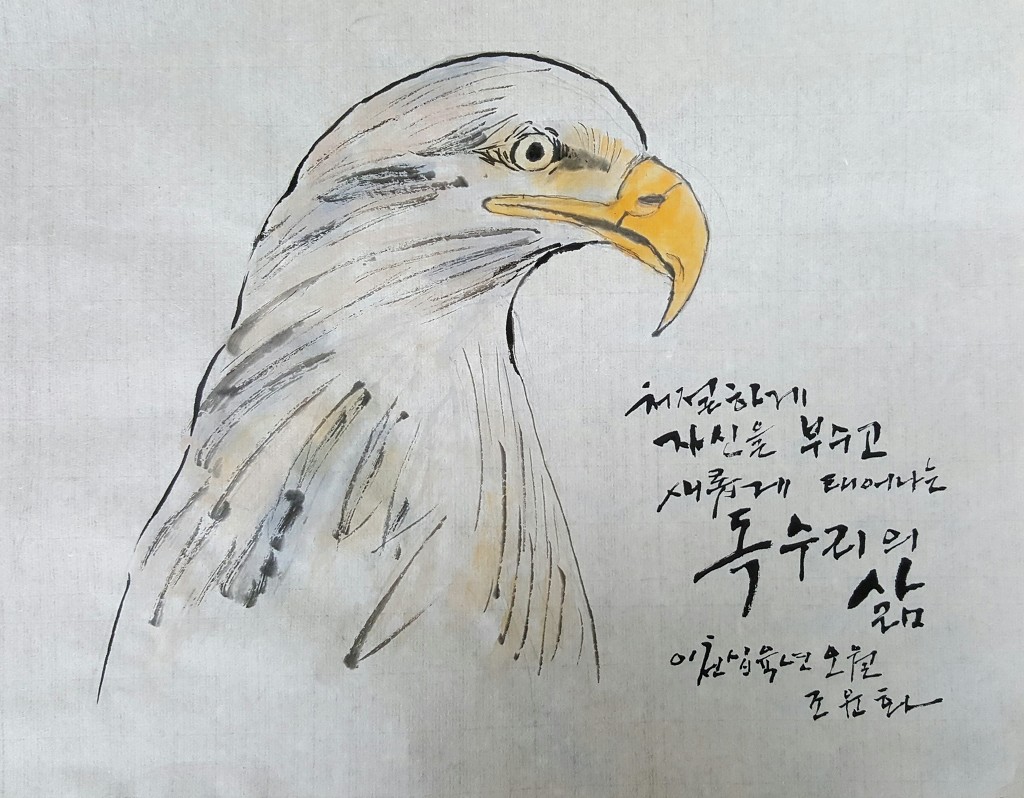 처절하게
자신을 부수고
새롭게 태어나는
독수리의
삶
이천십육년 오월
조윤화